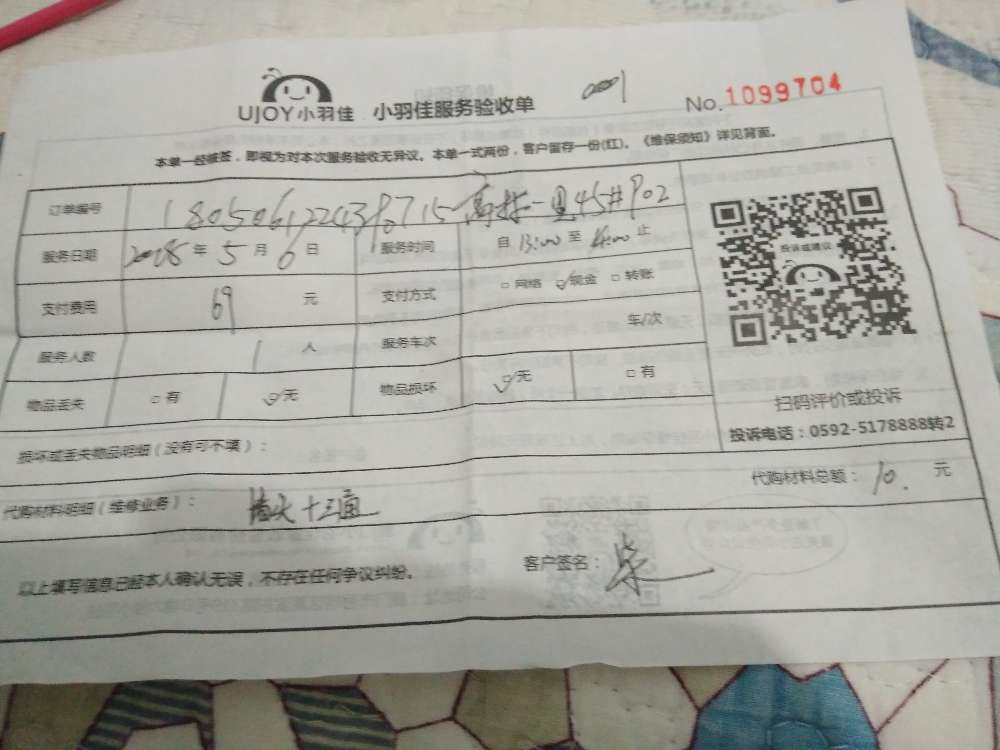 UJOY小羽佳 小羽佳服务验收单 No.1099704
本单一经核签，即视为对本次服务验收无异议。本单一式两份，客户留存一份(红)。《维保须知》详见背面。
订单编号 高林一里45#902
服务日期 2018年5月6日 服务时间 自13:00至14:00止
支付费用 69 元 支付方式 □网络 ☑现金 □转账
服务人数 1 人 服务车次 车/次
物品丢失 □有 ☑无 物品损坏 ☑无 □有
投诉或建议
扫码评价或投诉
投诉电话：0592-5178888转2
损坏或丢失物品明细（没有可不填）：
代购材料明细（维修业务）： 插头+三通 代购材料总额： 10. 元
以上填写信息已经本人确认无误，不存在任何争议纠纷。 客户签名： 柴